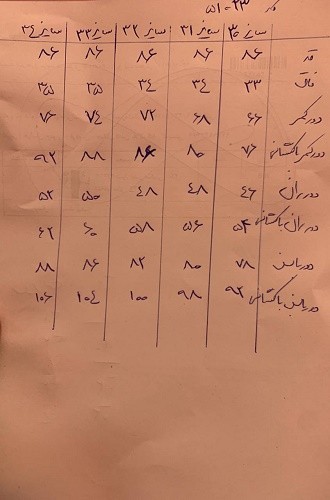 قد ۳۳-۵۱
سایز ۳۰ سایز ۳۱ سایز ۳۲ سایز ۳۳ سایز ۳۴
قد ۸۶ ۸۶ ۸۶ ۸۶ ۸۶
فاق ۳۳ ۳۴ ۳۴ ۳۵ ۳۵
دور کمر ۶۶ ۶۸ ۷۲ ۷۴ ۷۶
دور کمر باکشانی ۷۶ ۸۰ ۸۶ ۸۸ ۹۲
دور ران ۴۶ ۴۸ ۴۸ ۵۰ ۵۲
دور ران باکشانی ۵۴ ۵۶ ۵۸ ۶۰ ۶۲
دور باسن ۷۸ ۸۰ ۸۲ ۸۶ ۸۸
دور باسن باکشانی ۹۲ ۹۸ ۱۰۰ ۱۰۴ ۱۰۶